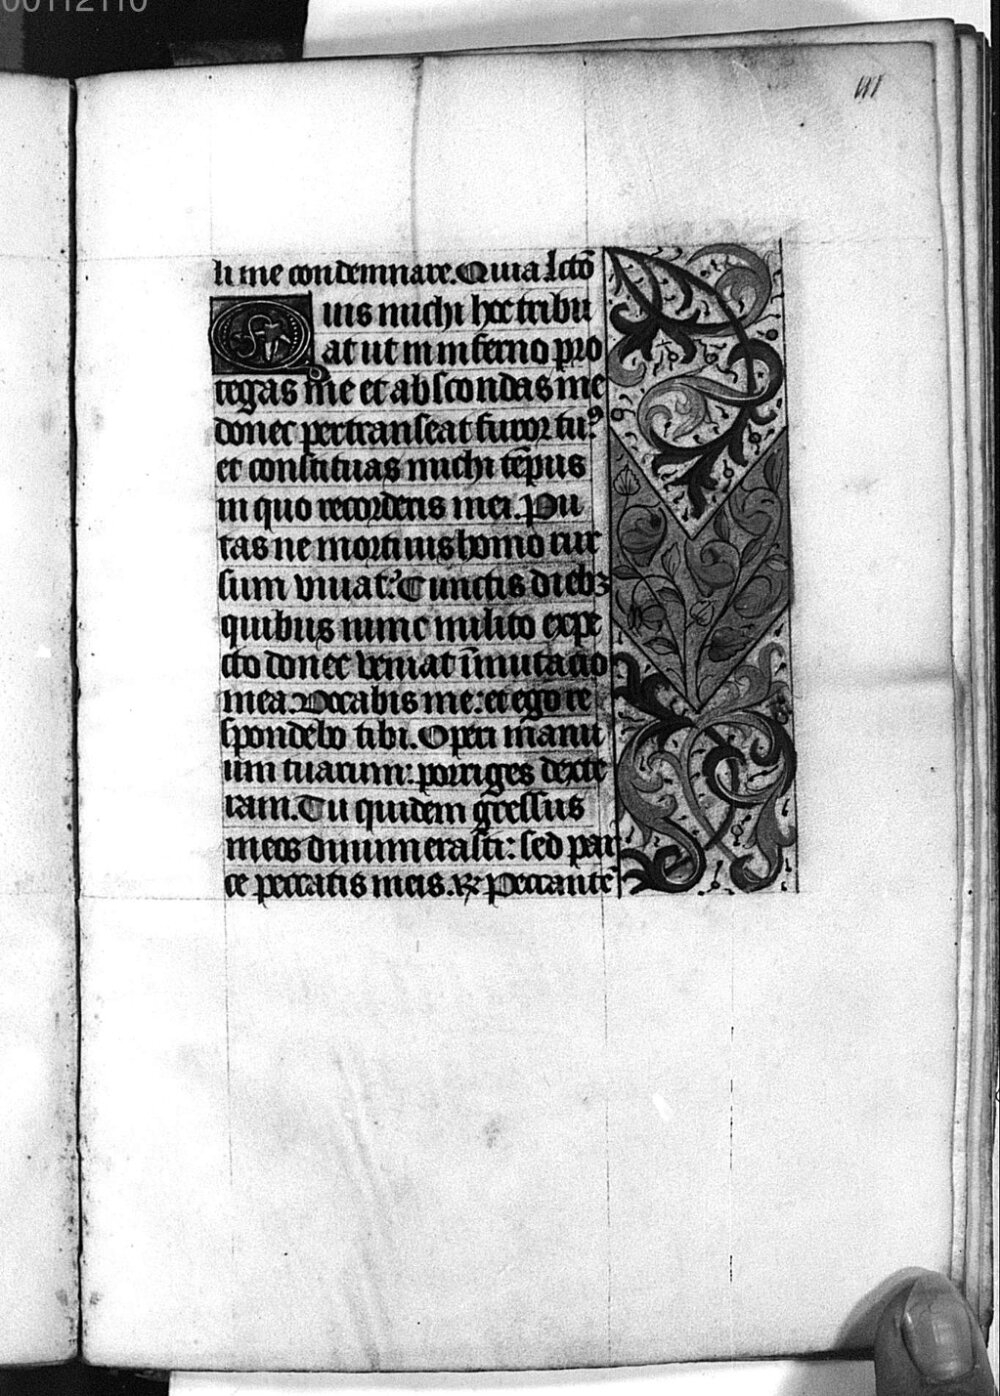 00112110
111
li me condemnare. Quia Lcto
Quis michi hoc tribu
at ut in inferno pro
tegas me et abscondas me
donec pertranseat furor tuꝰ
et constituas michi tēpus
in quo recorderis mei. Pu
tas ne mortuus homo rur
sum vivat? Cunctis diebꝫ
quibus nunc milito expe
cto donec veniat īmutatio
mea. Vocabis me: et ego re
spondebo tibi. Operi manu
um tuarum: porriges dexte
ram. Tu quidem gressus
meos dinumerasti: sed par
ce peccatis meis. ℟ Peccantē